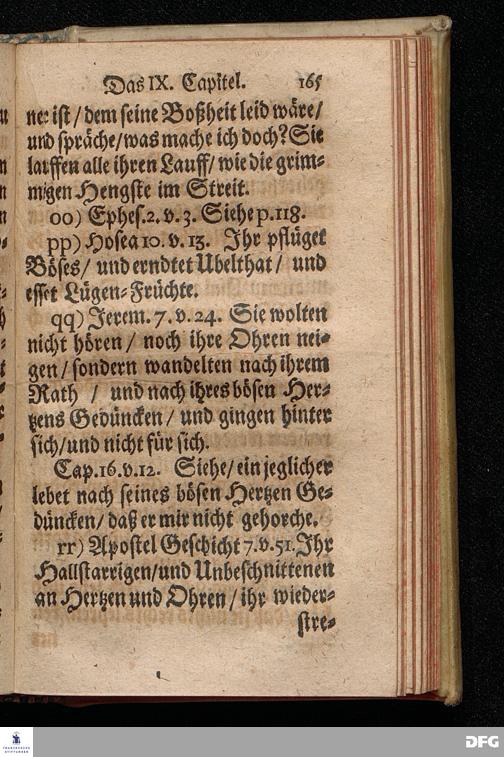 Das IX. Capitel. 165
ner ist / dem seine Boßheit leid wäre/
und spräche/was mache ich doch? Sie
lauffen alle ihren Lauff/ wie die grim-
migen Hengste im Streit.
oo) Ephes.2. v. 3. Siehe p.118.
pp) Hosea 10. v. 13. Ihr pflüget
Böses/ und erndtet Ubelthat / und
esset Lügen-Früchte.
qq) Jerem. 7. v. 24. Sie wolten
nicht hören / noch ihre Ohren nei-
gen/ sondern wandelten nach ihrem
Rath / und nach ihres bösen Her-
tzens Gedüncken / und gingen hinter
sich/und nicht für sich.
Cap.16.v.12. Siehe/ein jeglicher
lebet nach seines bösen Hertzen Ge-
düncken/ daß er mir nicht gehorche.
rr) Apostel Geschicht 7.v.51. Ihr
Hallstarrigen/und Unbeschnittenen
an Hertzen und Ohren / ihr wieder-
stre-
FRANCKESCHE
STIFTUNGEN
DFG